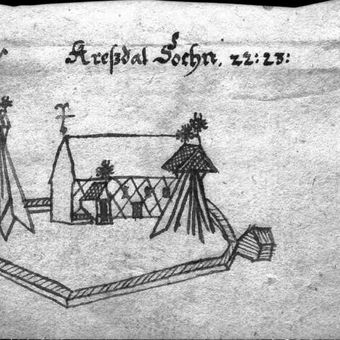 Kreßdal Sochn, 22: 23: